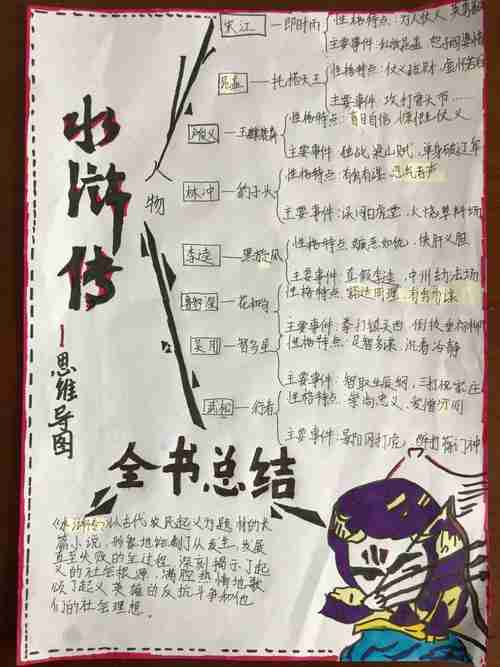 水浒传
—思维导图
人物
宋江—即时雨
性格特点：为人仗义
主要事件：私放晁盖
晁盖—托塔天王
性格特点：仗义疏财
主要事件
卢俊义—玉麒麟
性格特点：盲目自信
主要事件
林冲—豹子头
性格特点：有勇有谋 忍气吞声
主要事件：误闯白虎堂，火烧草料场
李逵—黑旋风
性格特点：嫉恶如仇，侠肝义胆
主要事件：真假李逵
鲁智深—花和尚
性格特点
主要事件：拳打镇关西，倒拔垂杨柳
吴用—智多星
性格特点：足智多谋，沉着冷静
主要事件：智取生辰纲，三打祝家庄
武松—行者
性格特点：崇尚忠义，爱憎分明
主要事件：景阳冈打虎
全书总结
《水浒传》以古代农民起义为题材的长
篇小说，形象地描剧了从发生，发展
直至失败的全过程，深刻揭示了起
义的社会根源，满腔热情地歌
颂了起义英雄的反抗斗争和他
们的社会理想。